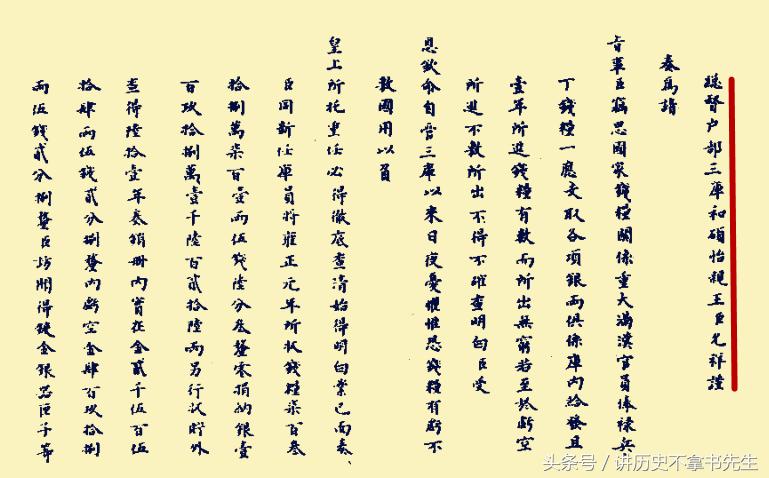 總督户部三庫和碩怡親王臣允祥謹
奏爲請
旨事臣竊思國家錢糧關係重大滿漢官員俸禄兵
丁錢糧一應支取各項銀兩俱係庫内給發且
壹年所進錢糧有數而所出無窮若至於虧空
所進不敷所出不得不確查明白臣受
恩欽命自管三庫以來日夜憂懼惟恐錢糧有虧不
敷國用以負
皇上所托重任必得徹底查清始得明白業已面奏、
臣同新任軍員將雍正元年所收錢糧柒百叁
拾捌萬柒百壹兩伍錢陸分叁釐零捐納銀壹
百玖拾捌萬壹千陸百貳拾陸兩另行試貯外
查得陸拾壹年奏銷册内實在金貳千伍百伍
拾肆兩伍錢貳分捌釐内虧空金肆百玖拾捌
兩伍錢貳分捌釐臣訪聞得鍍金銀器皿子等
头条号 / 讲历史不拿书先生